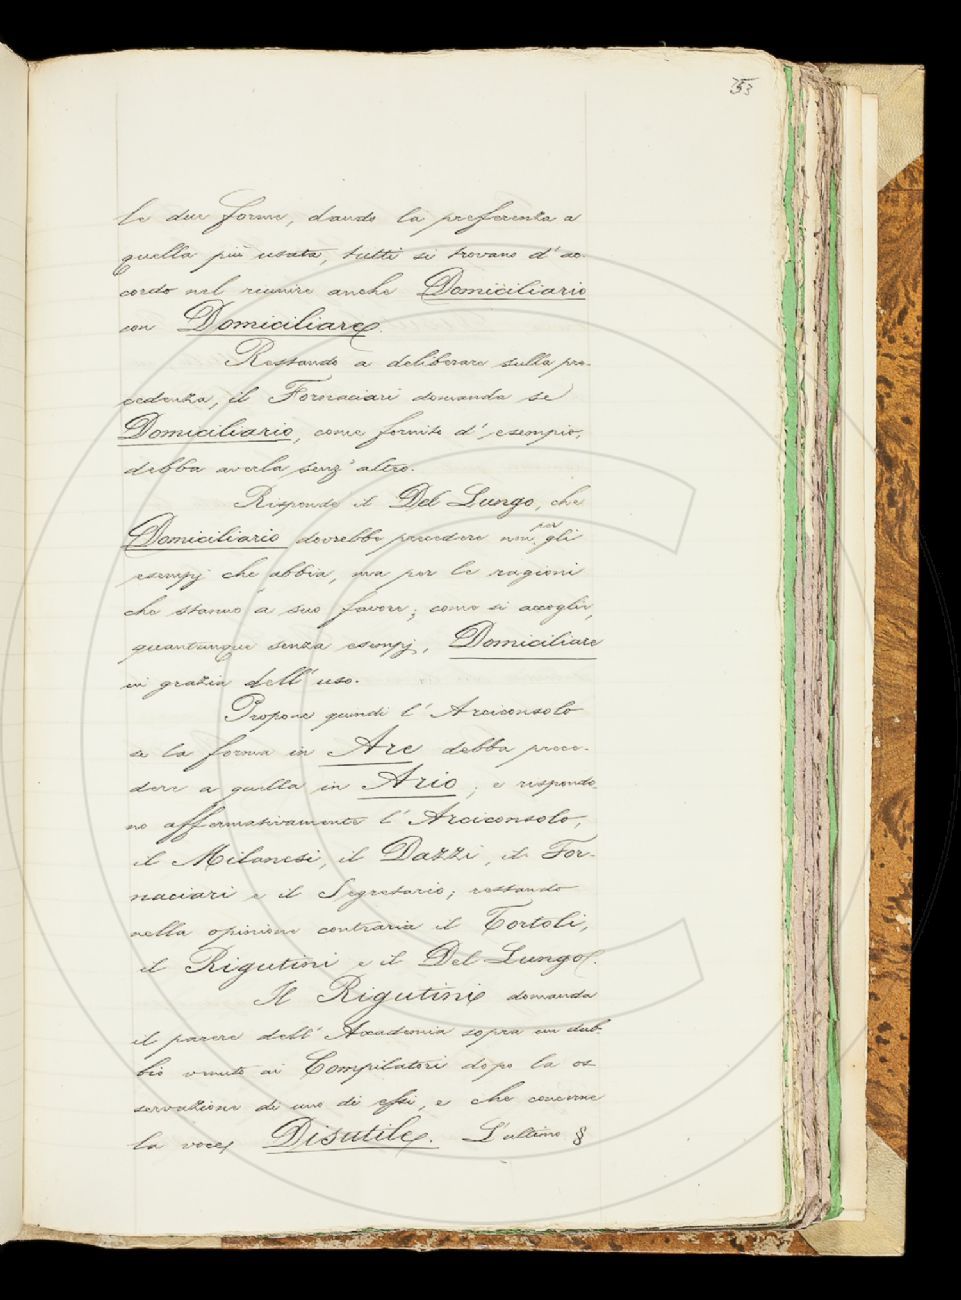 53
le due forme, dando la preferenza a
quella più usata, tutti si trovano d'ac
cordo nel reunire anche Domiciliario
con Domiciliare.
Restando a deliberare sulla pre-
cedenza, il Fornaciari domanda se
Domiciliario, come fornito d'esempio,
debba averla senz'altro.
Risponde il Del Lungo, che
Domiciliario dovrebbe precedere non per gli
esempj che abbia, ma per le ragioni
che stanno a suo favore; come si accoglie,
quantunque senza esempj, Domiciliare
in grazia dell'uso.
Propone quindi l'Arciconsolo
se la forma in Are debba prece-
dere a quella in Ario; e rispondo
no affermativamente l'Arciconsolo,
il Milanesi, il Dazzi, il For-
naciari e il Segretario; restando
nella opinione contraria il Tortoli,
il Rigutini e il Del Lungo.
Il Rigutini domanda
il parere dell'Accademia sopra un dub-
bio venuto ai Compilatori dopo la os
servazione di uno di essi, e che concerne
la voce Disutile. L'ultimo §